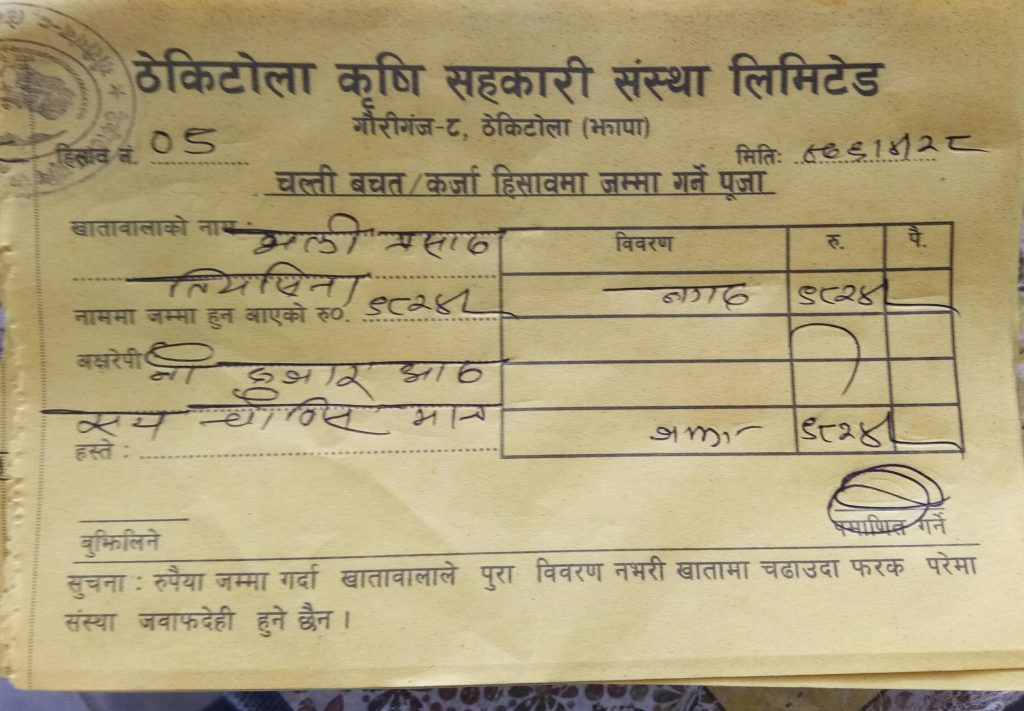 ठेकिटोला कृषि सहकारी संस्था लिमिटेड
गौरीगंज-८, ठेकिटोला (झापा)
हिसाव नं. 05 मितिः ०७६।४।२८
चल्ती बचत/कर्जा हिसावमा जम्मा गर्ने पूजा
खातावालाको नाम : प्रसाद
विवरण रु. पै.
नगद ९८२४।
नाममा जम्मा हुन आएको रु०. ९८२४।
अक्षरेपी नौ हजार आठ
सय चौविस मात्र
जम्मा ९८२४।
हस्ते :
प्रमाणित गर्ने
बुझिलिने
सुचना : रुपैया जम्मा गर्दा खातावालाले पुरा विवरण नभरी खातामा चढाउदा फरक परेमा
संस्था जवाफदेही हुने छैन ।